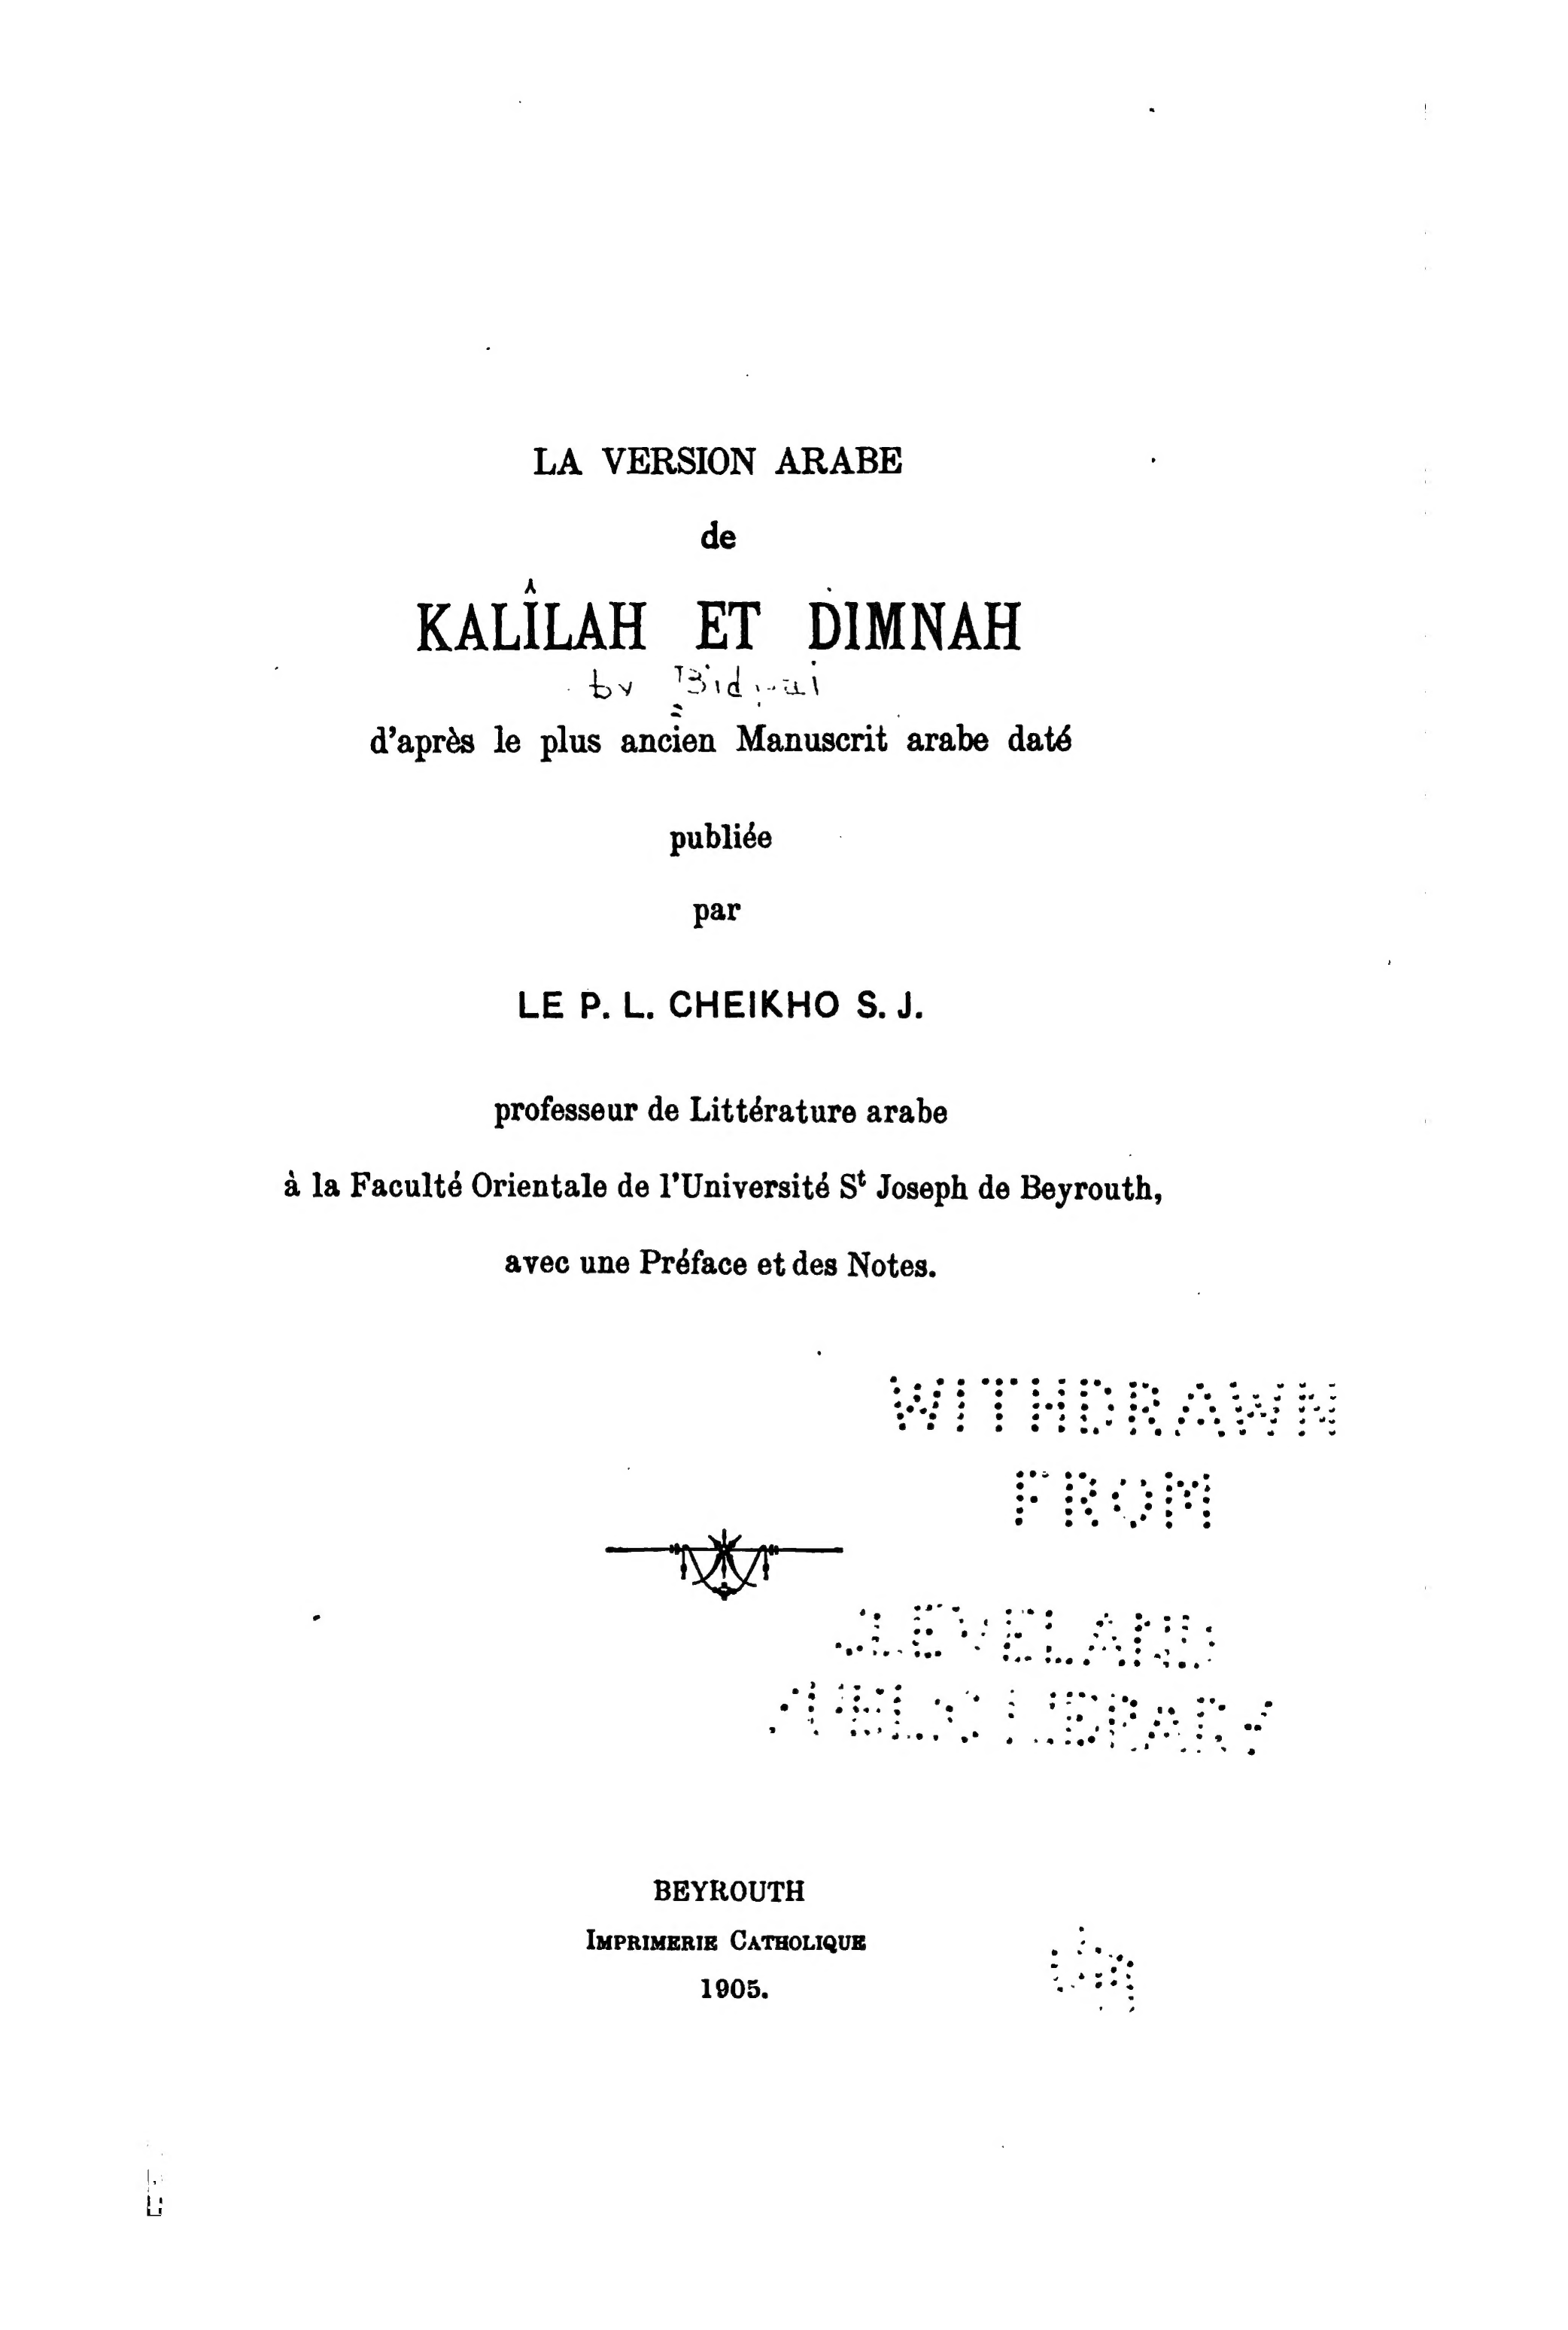 LA VERSION ARABE
de
KALÎLAH ET DIMNAH
by Bidpai
d'après le plus ancien Manuscrit arabe daté
publiée
par
LE P. L. CHEIKHO S. J.
professeur de Littérature arabe
à la Faculté Orientale de l'Université St Joseph de Beyrouth,
avec une Préface et des Notes.
WITHDRAWN
FROM
CLEVELAND
PUBLIC LIBRARY
BEYROUTH
IMPRIMERIE CATHOLIQUE
1905.